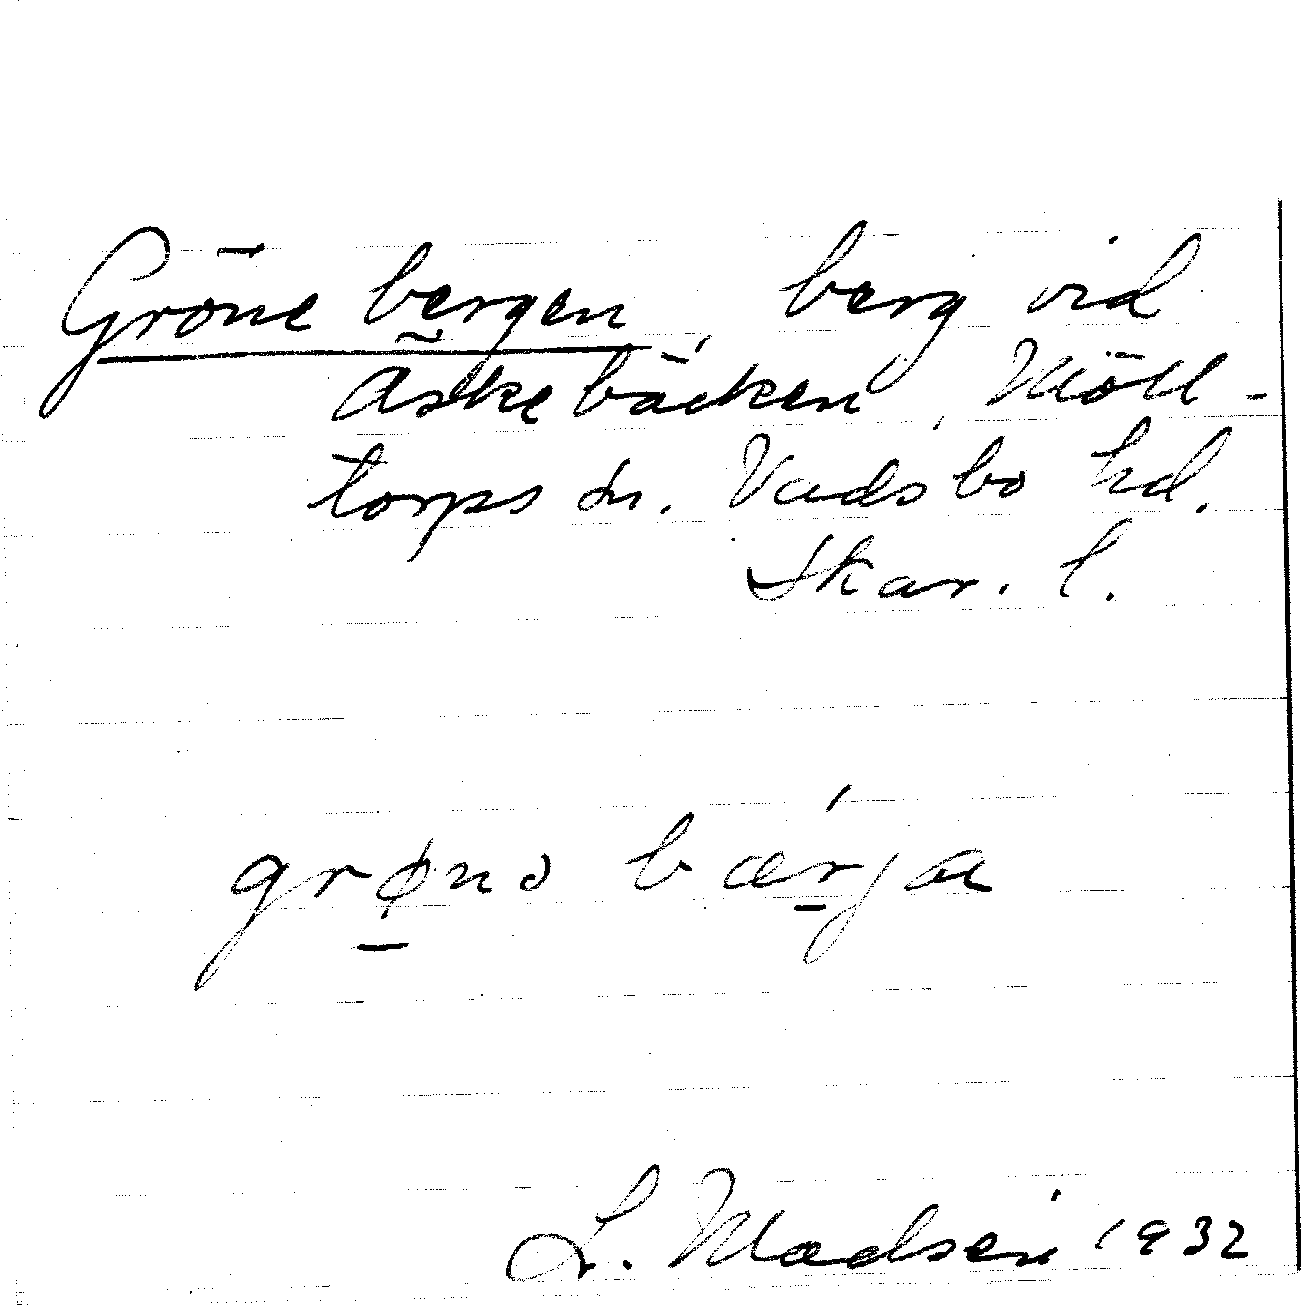 Gröne bergen, berg vid
Askebäcken, Möll-
torps sn. Vadsbo hd.
Skar. l.
grønə bærja
L. Madsén 1932